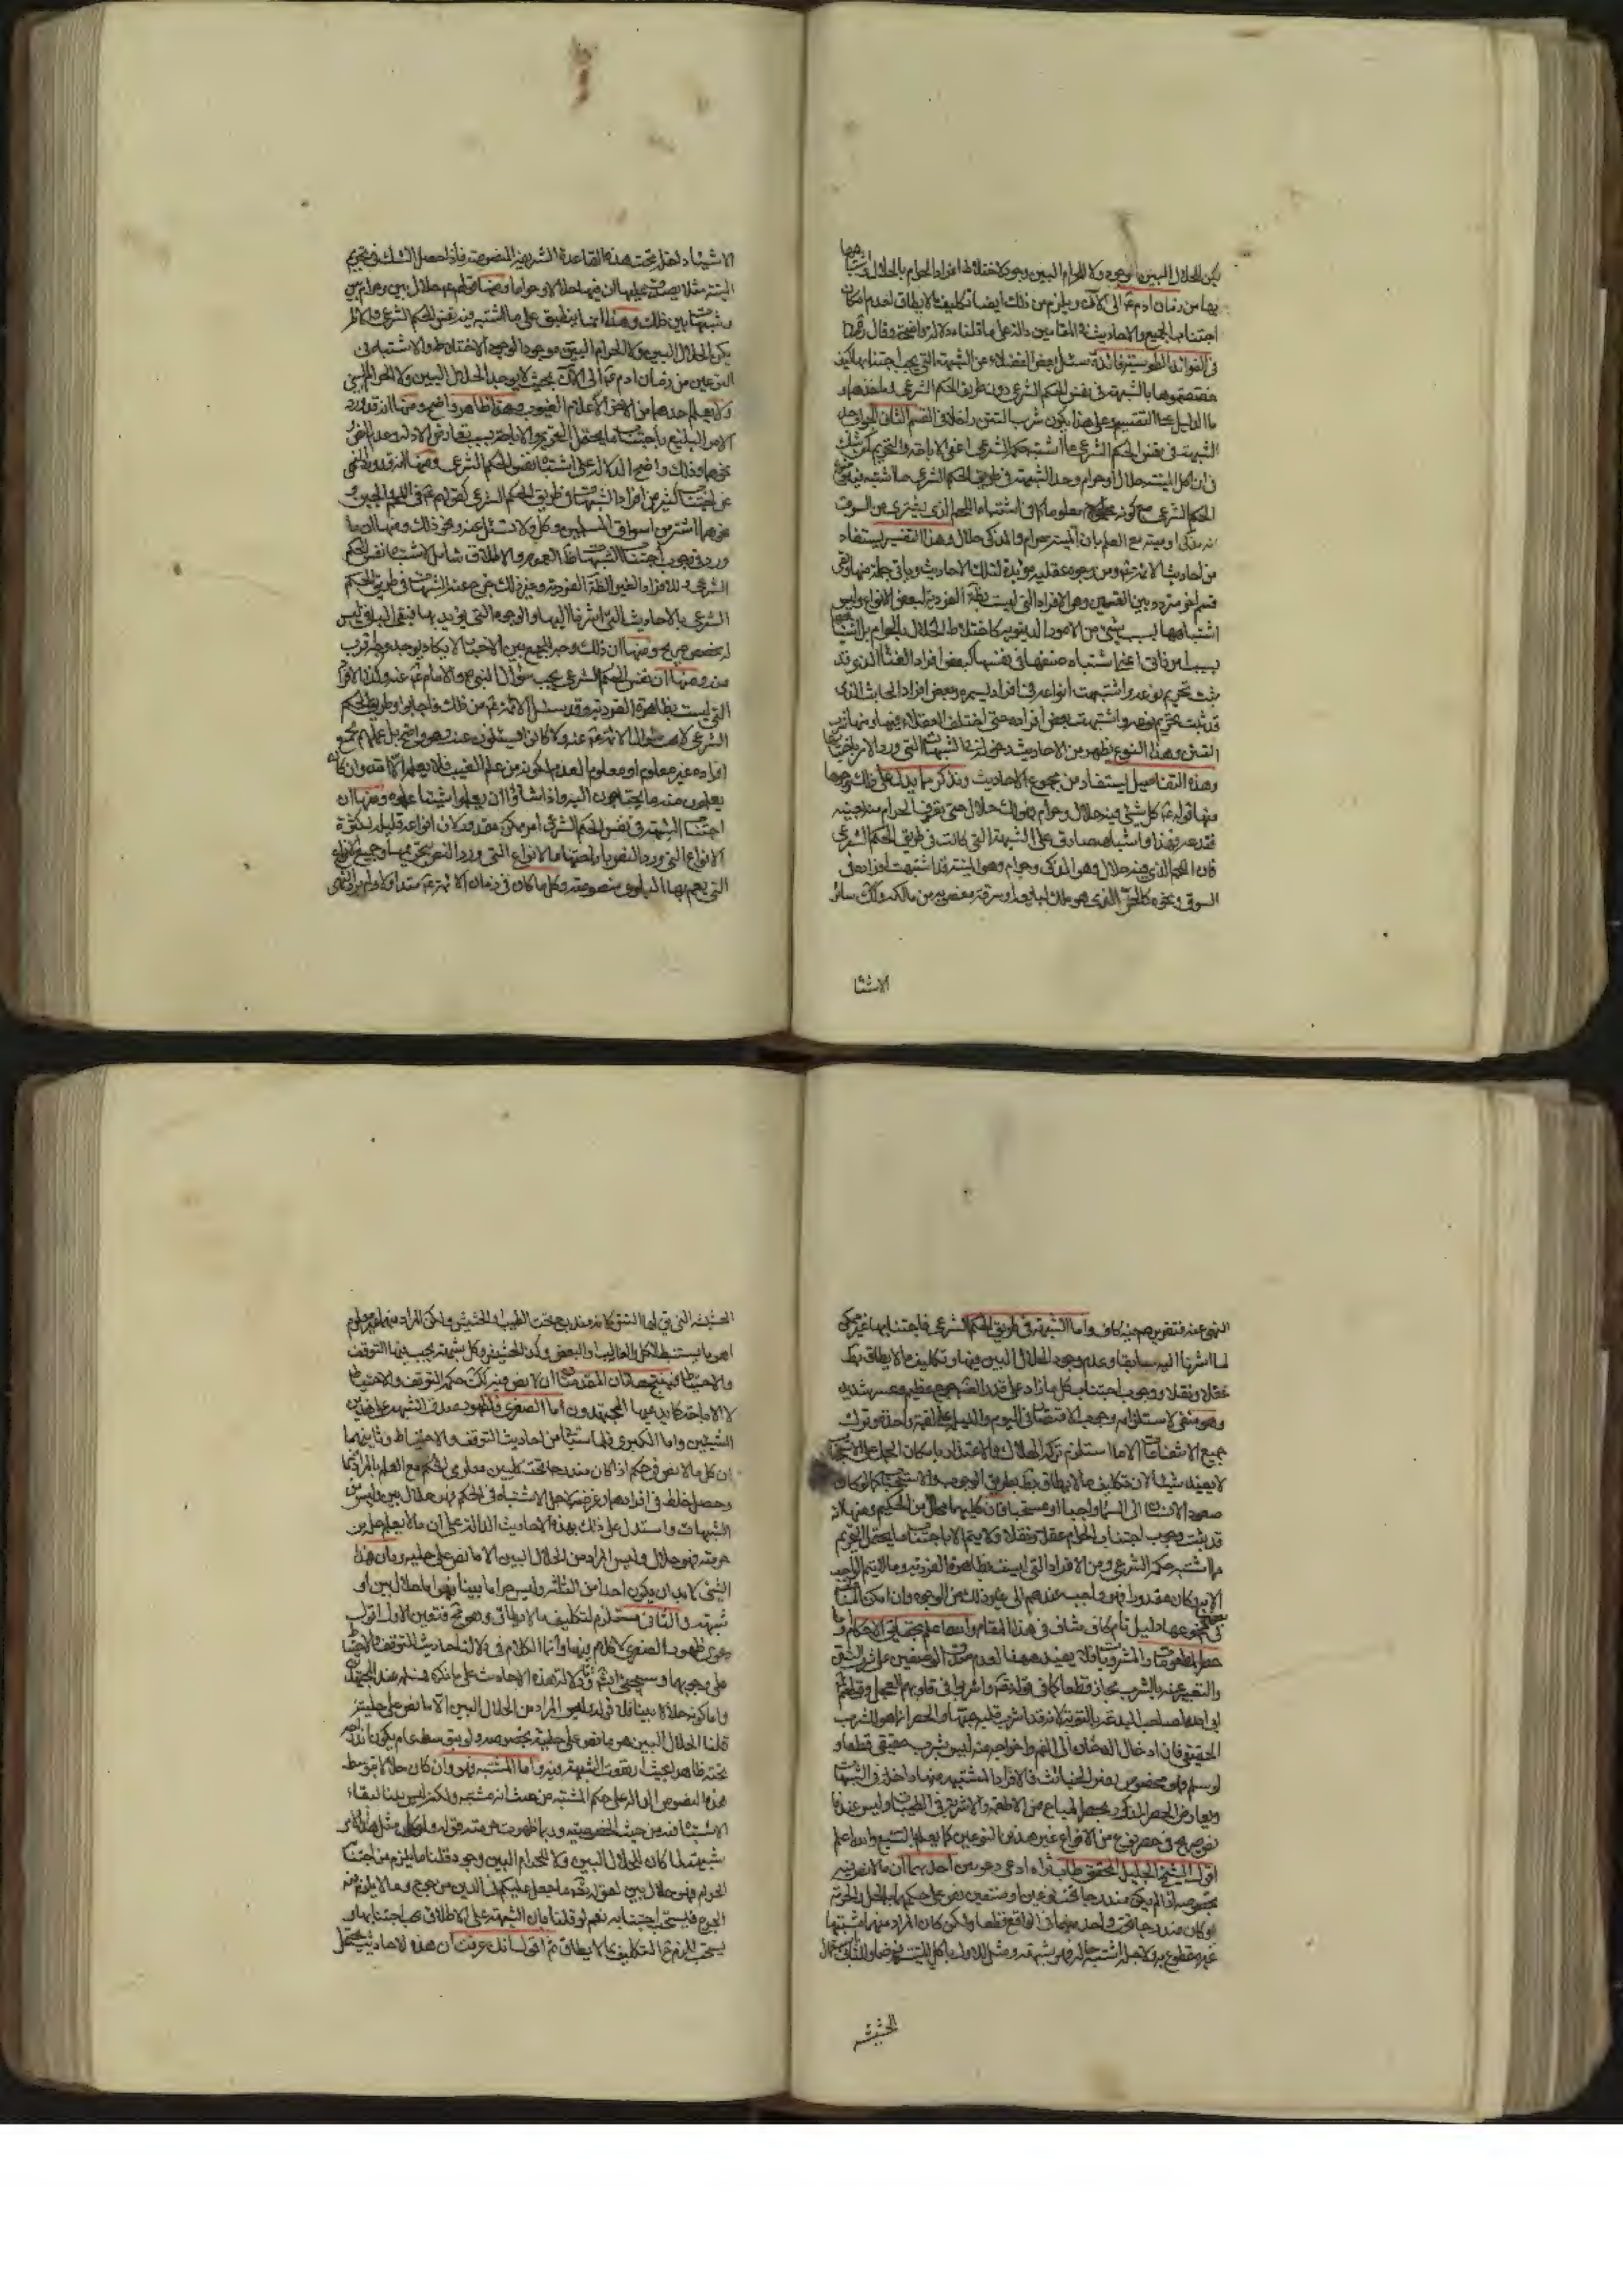 يكن الحلال البين موجودا ولا الحرام البين وجود لاختلاط افراد الحرام بالحلال واشتباهها
بها من زمان ادم ع الى الآن ويلزم من ذلك ايضا تكليف ما لا يطاق لعدم امكان
اجتناب الجميع والاحاديث في المقامين دالة على ما قلناه دلالة واضحة وقال
في الفوائد الطوسية فائدة سئل بعض الفضلاء عن الشبهة التي يجب اجتنابها كيف
خصصتموها بالشبهة في نفس الحكم الشرعي دون طريق الحكم الشرعي وما حدهما و
ما الدليل على التقسيم وعلى هذا يكون شرب التتن داخلا في القسم الثاني الجواب حد
الشبهة في نفس الحكم الشرعي ما اشتبه حكمه الشرعي اعني الاباحة والتحريم كمن شك
في ان اكل الميتة حلال او حرام وحد الشبهة في طريق الحكم الشرعي ما اشتبه فيه موضوع
الحكم الشرعي مع كون محموله معلوما كما في اشتباه اللحم الذي يشترى من السوق
انه مذكى او ميتة مع العلم بان الميتة حرام والمذكى حلال وهذا التقسيم يستفاد
من احاديث الائمة ع ومن وجوه عقلية مؤيدة لتلك الاحاديث وياتي جملة منها وبقي
قسم اخر متردد بين القسمين وهي الافراد التي ليست بظاهرة الفردية لبعض الانواع وليس
اشتباهها بسبب شيء من الامور الدنيوية كاختلاط الحلال بالحرام بل اشتباهها
بسبب امر ذاتي اعني اشتباه صنفها في نفسها كبعض افراد الغناء الذي قد
ثبت تحريم نوعه واشتبهت انواعه في افراد يسيرة وبعض افراد الخبائث الذي
قد ثبت تحريم نوعه واشتبهت بعض افراده حتى اختلف العقلاء فيها ومنها شرب
التتن وهذا النوع يظهر من الاحاديث دخوله في الشبهات التي ورد الامر باجتنابها
وهذه التفاصيل يستفاد من مجموع الاحاديث ونذكر مما يدل على ذلك وجوها
منها قوله ع كل شيء فيه حلال وحرام فهو لك حلال حتى تعرف الحرام منه بعينه
فتدعه فهذا واشباهه صادق على الشبهة التي كانت في طريق الحكم الشرعي
فان اللحم الذي فيه حلال وهو المذكى وحرام وهو الميتة قد اشتبهت افراده في
السوق ونحوه كالخبز الذي هو ملك لبايعه او سرقة مغصوب من مالكه وكذلك سائر
الاشيا
الاشياء داخل تحت هذه القاعدة الشريفة المنصوصة فاذا حصل الشك في تحريم
الميتة مثلا لم يصدق عليها ان فيها حلالا وحراما ومنها قولهم ع حلال بين وحرام بين
وشبهات بين ذلك وهذا انما ينطبق على ما اشتبه فيه نفس الحكم الشرعي والا لم
يكن الحلال البين ولا الحرام البين موجودا لوجود الاختلاط والاشتباه في
النوعين من زمان ادم ع الى الآن بحيث لا يوجد الحلال البين ولا الحرام البين
ولا يعلم احدهما من الاخر الا علام الغيوب وهذا ظاهر واضح ومنها انه قد ورد
الامر البليغ باجتناب ما يحتمل التحريم والاباحة بسبب تعارض الادلة وعدم النص
نحوهما وذلك واضح الدلالة على اشتباه نفس الحكم الشرعي ومنها انه قد ورد النهي
عن اجتناب كثير من افراد الشبهات في طريق الحكم الشرعي كقولهم ع في اللحم والجبن و
نحوهما اشتر من اسواق المسلمين وكل ولا تسئل عنه ونحو ذلك ومنها ان ما
ورد في وجوب اجتناب الشبهات ظاهر العموم والاطلاق شامل لاشتباه نفس الحكم
الشرعي وللافراد الغير الظاهرة الفردية وغير ذلك خرج عنه الشبهات في طريق الحكم
الشرعي بالاحاديث التي اشرنا اليها والوجوه التي يؤيدها فيبقى الباقي ليس
له مخصص صريح ومنها ان ذلك وجه للجمع بين الاخبار لا يكاد يوجد وجه اقرب
منه ومنها ان نفس الحكم الشرعي يجب سؤال النبي ص والامام ع عنه وكذا الافراد
التي ليست بظاهرة الفردية وقد سئل الائمة ع من ذلك فاجابوا وطريق الحكم
الشرعي لا يجب سؤال الائمة ع عنه ولا كانوا يسئلون عنه وهو واضح بل علمهم بجميع
افراده غير معلوم او معلوم العدم لكونه من علم الغيب فلا يعلمه الا الله وان كانوا
يعلمون منه ما يحتاجون اليه واذا شاؤا ان يعلموا شيئا علموه ومنها ان
اجتناب الشبهة في نفس الحكم الشرعي امر ممكن مقدور لان انواعه قليلة لكثرة
الانواع التي ورد النص باباحتها والانواع التي ورد النص بتحريمها وجميع الانواع
التي يعم بها البلوى منصوصة وكلما كان في زمان الائمة ع متداولا ولم يرد النهي
النهي عنه فتقريرهم فيه كاف واما الشبهة في طريق الحكم الشرعي فاجتنابها غير ممكن
لما اشرنا اليه سابقا وعدم وجود الحلال البين فيها وتكليف ما لا يطاق باطل
عقلا ونقلا ووجوب اجتناب كل ما زاد على قدر الضرورة حرج عظيم وعسر شديد
وهو منفي لاستلزامه وجوب الاقتصار في اليوم والليلة على لقمة واحدة وترك
جميع الانتفاعات الا ما استلزم تركه الهلاك والاعتذار بامكان الحمل على الاستحباب
لا يفيد شيئا لان تكليف ما لا يطاق باطل بطريق الوجوب والاستحباب كما لو كان
صعود الانسان الى السماء واجبا او مستحبا فان كليهما محال من الحكيم ومنها انه
قد ثبت وجوب اجتناب الحرام عقلا ونقلا ولا يتم الا باجتناب ما يحتمل التحريم
مما اشتبه حكمه الشرعي ومن الافراد التي ليست بظاهرة الفردية وما لا يتم الواجب
الا به وكان مقدورا فهو واجب عندهم الى غير ذلك من الوجوه وان امكن المناقشة
في بعضها فمجموعها دليل تام كاف شاف في هذا المقام والله اعلم بحقايق الاحكام
حصر المطعومات والمشروبات لا يفيد ههنا لعدم صدق الوصفين على شرب التتن
والتعبير عنه بالشرب مجاز قطعا كما في قوله تعالى واشربوا في قلوبهم العجل وقولهم
لانه قد اشرب قلبه حبها والحصر انما هو للشرب
الحقيقي فان ادخال الدخان الى الفم واخراجه منه ليس بشرب حقيقي قطعا و
لو سلم فهو مخصوص بغير الخبائث فالافراد المشتبهة منها داخلة في الشبهات
ويعارض الحصر المذكور بحصر المباح من الاطعمة والاشربة في الطيبات وليس عندنا
نص صريح في حصر نوع من الانواع غير هذين النوعين كما يعلم بالتتبع والله اعلم
اقول الشيخ الجليل المحقق طاب ثراه ادعى دعويين احدهما ان ما لا نص فيه
بخصوصه اذا لم يكن مندرجا تحت نوعين او صنفين نص على حكمهما بالحل والحرمة
او كان مندرجا تحت واحد منهما في الواقع قطعا ولكن كان المراد منهما مشتبها
غير مقطوع به ولاجله اشتبه حاله فهو شبهة ومثل للاول باكل الميتة فرضا وللثاني بمثال
الخبيثة
الخبيثة التي في لها التتن كانه مندرج تحت الطيب والخبيث ولكن المراد منهما غير معلوم
اهو ما يستنبطه الكل والغالب او البعض وكذا الخبيث وكل شبهة يجب فيها التوقف
والاحتياط فينتج هاتان المقدمتان ان لا نص فيه كذلك حكمه التوقف والاحتياط
لا الاباحة كما يدعيها المجتهدون اما الصغرى فلظهور صدق الشبهة على هذين
الشيئين واما الكبرى فلما سيجيئ من احاديث التوقف والاحتياط وثانيهما
ان كل ما لا نص في حكمه اذا كان مندرجا تحت كليين معلومي الحكم مع العلم بالمراد منهما
وحصل خلط في افرادهما وعرضه لاجل الاشتباه في الحكم فهو حلال بين وليس من
الشبهات واستدل على ذلك بهذه الاحاديث الدالة على ان ما لا يعلم حله من
حرمته فهو حلال وليس المراد من الحلال البين الا ما نص على حليته وبان هذا
الشيء لا بد ان يكون احدا من الثلاثة وليس حراما بينا فهو اما حلال بين او
شبهة والثاني مستلزم لتكليف ما لا يطاق وهو قبيح فتعين الاول اقول
دعوى ظهور الصغرى لا كلام فيها وانما الكلام في دلالة احاديث التوقف والاحتياط
على وجوبهما وسيجيئ واما دلالة هذه الاحاديث على ما ذكره فمسلم عند المجتهدين
واما كونه حلالا بينا فلا قوله وليس المراد من الحلال البين الا ما نص على حليته
قلنا الحلال البين هو ما نص على حليته بخصوصه ولو بتوسط عام يكون اندراجه
تحته ظاهرا بحيث ارتفعت الشبهة فيه واما المشتبه فهو وان كان حلالا بتوسط
هذه النصوص الدالة على حكم المشتبه من حيث انه مشتبه ولكنه ليس بينا لبقاء
الاشتباه فيه من حيث الخصوصية وربما ظهرت حرمته قوله ولو كان مثل هذا الامر
شبهة لما كان للحلال البين ولا للحرام البين وجود قلنا ما يلزم من اجتناب
الحرج فهو حلال بين لقوله تعالى ما جعل عليكم في الدين من حرج وما لا يلزم منه
الحرج فيستحب اجتنابه نعم لو قلنا بان الشبهة على الاطلاق يجب اجتنابها او
يستحب للزم التكليف بما لا يطاق ثم اقول انك عرفت ان هذه الاحاديث يحتمل